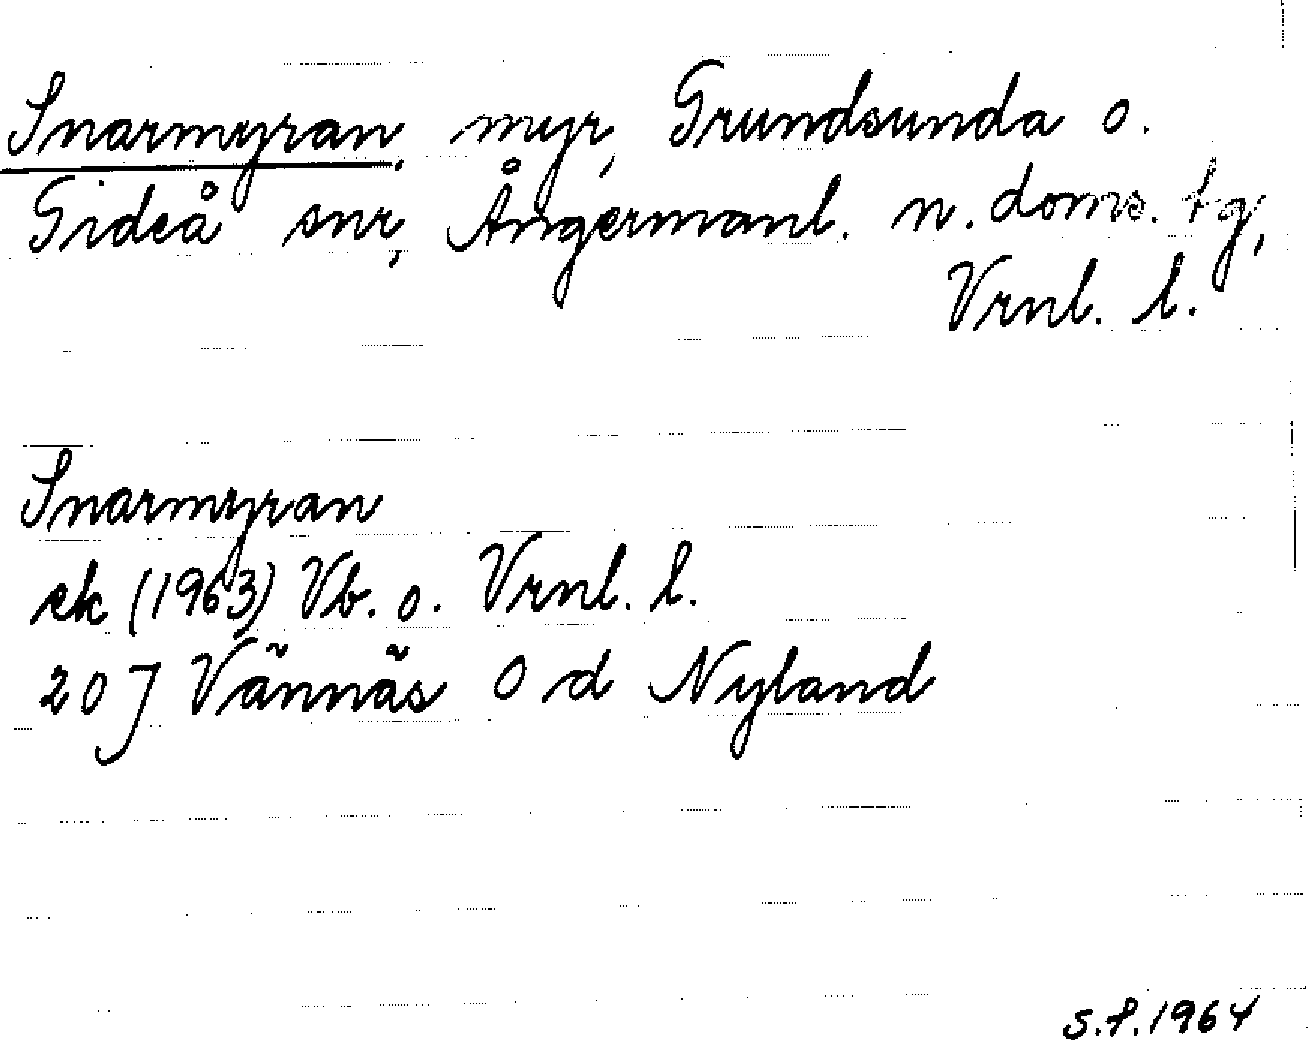 Snarmyran, myr, Grundsunda o.
Gideå snr, Ångermanl. n. doms. tg,
Vrnl. l.
Snarmyran
ek (1963) Vb. o. Vrnl. l.
20 J Vännäs O d Nyland
S.f. 1964